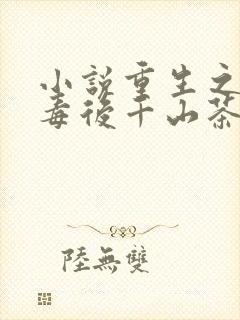 小説重生之
毒後千山茶
陸無雙